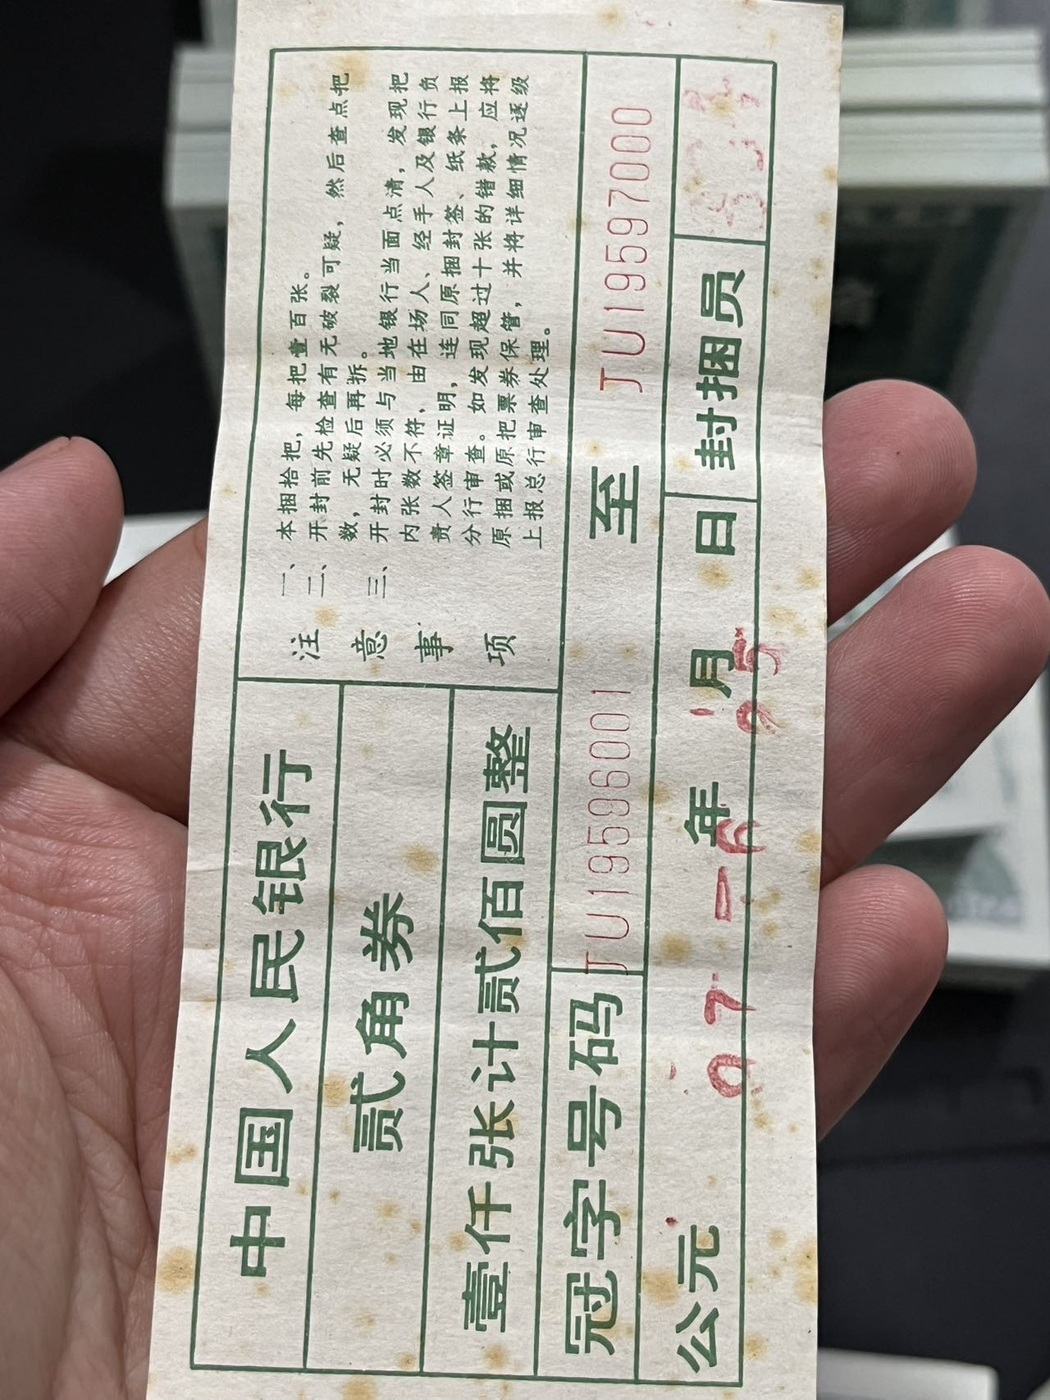 中国人民银行
贰角券
壹仟张计贰佰圆整
注意事项
一、本捆拾把，每把壹百张。
二、开封前先检查有无破裂可疑，然后查点把
数，无疑后再拆。
三、开封时必须与当地银行当面点清，发现把
内张数不符，由在场人、经手人及银行负
责人签章证明，连同原捆封签、纸条上报
分行审查。如发现超过十张的错款，应将
原捆或原把票券保管，并将详细情况逐级
上报总行审查处理。
冠字号码 JU19596001 至 JU19597000
公元 年 月 日 封捆员